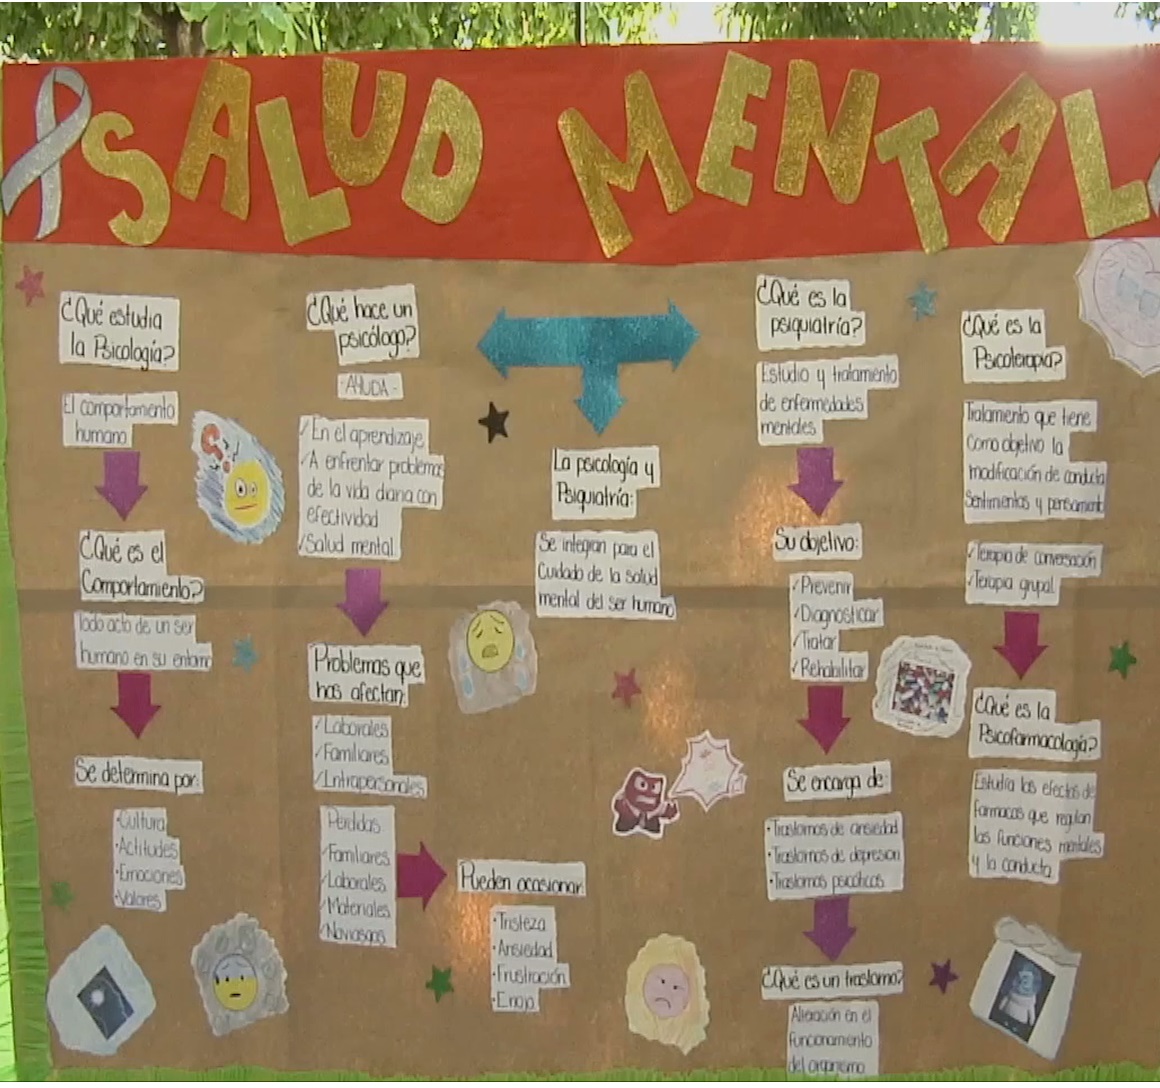 SALUD MENTAL
¿Qué estudia
la Psicología?
El comportamiento
humano
¿Qué es el
Comportamiento?
Todo acto de un ser
humano en su entorno
Se determina por:
•Cultura
•Actitudes
•Emociones
•Valores
¿Qué hace un
psicólogo?
-AYUDA-
✓En el aprendizaje
✓A enfrentar problemas
de la vida diaria con
efectividad
✓Salud mental
Problemas que
has afectan:
✓Laborales
✓Familiares
✓Intrapersonales
Perdidas
✓Familiares
✓Laborales
✓Materiales
✓Noviasgos
Pueden ocasionar
•Tristeza
•Ansiedad
•Frustración
•Enojo
La psicología y
Psiquiatría:
Se integran para el
Cuidado de la salud
mental del ser humano
¿Qué es la
psiquiatría?
Estudio y tratamiento
de enfermedades
mentales
Su objetivo:
✓Prevenir
✓Diagnosticar
✓Tratar
✓Rehabilitar
Se encarga de:
•Trastornos de ansiedad
•Trastornos de depresion
•Trastornos psicóticos
¿Qué es un trastorno?
Alteración en el
funcionamiento
del organismo
¿Qué es la
Psicoterapia?
Tratamiento que tiene
como objetivo la
modificación de conducta
sentimientos y pensamient
✓Terapia de conversación
✓Terapia grupal
¿Qué es la
Psicofarmacología?
Estudia los efectos de
farmacos que regulan
las funciones mentales
y la conducta